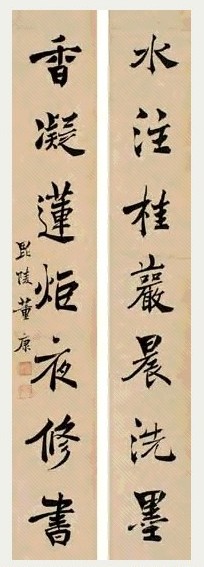 水注桂巖晨洗墨
香凝蓮炬夜修書
毘陵董康